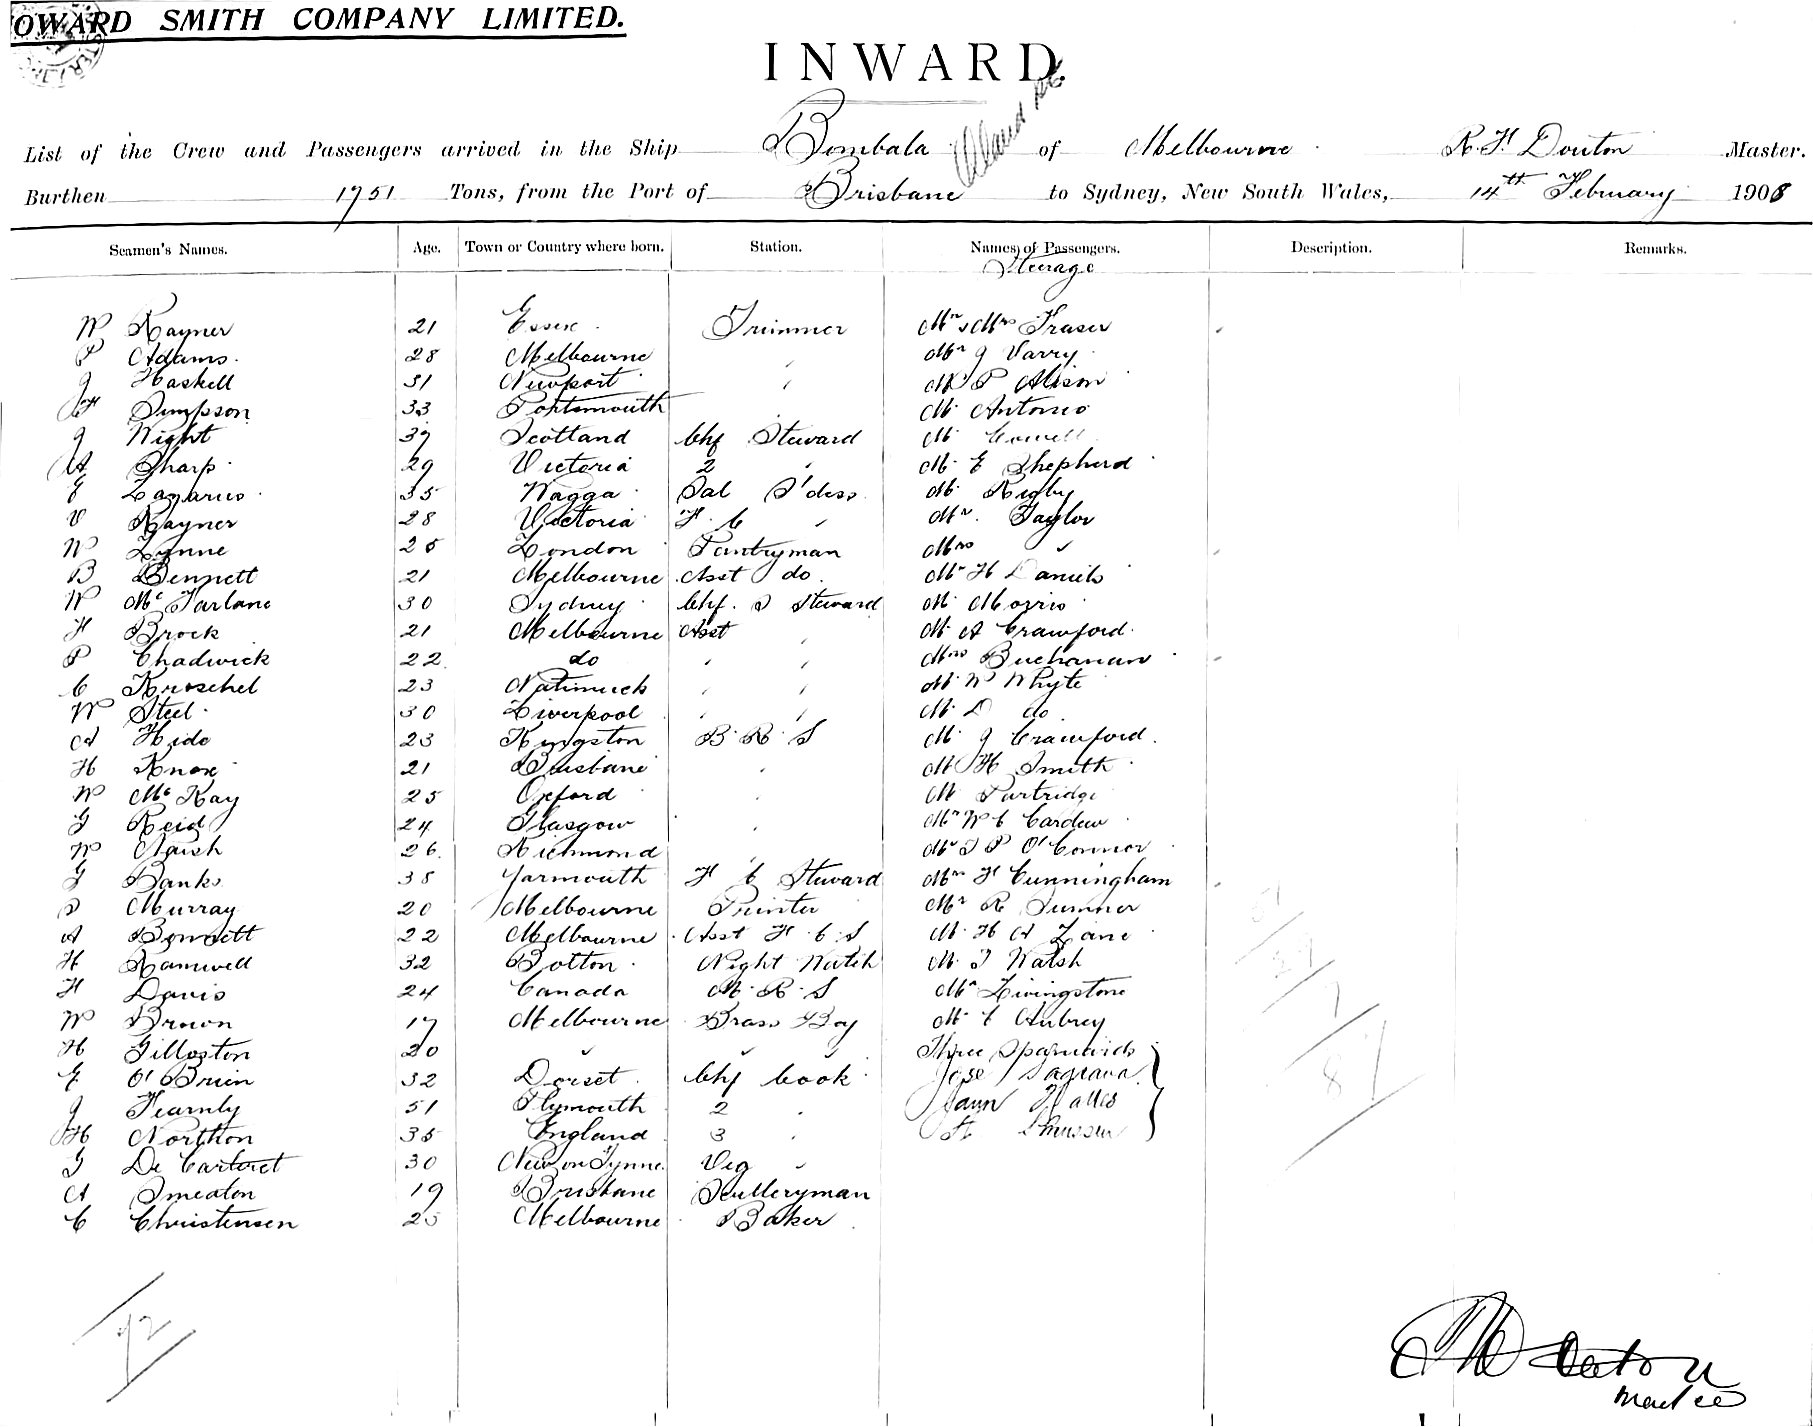 OWARD SMITH COMPANY LIMITED.
INWARD.
List of the Crew and Passengers arrived in the Ship Bombala of Melbourne R. H. Douton Master.
Burthen 1751 Tons, from the Port of Brisbane to Sydney, New South Wales, 14th February 1908
Seamen's Names. Age. Town or Country where born. Station. Names of Passengers. Description. Remarks.
Steerage
W Rayner 21 Essex Trimmer Mr & Mrs Fraser
P Adams 28 Melbourne " Mr J Varry
J Haskell 31 Newport " Mr P Alison
H Simpson 33 Portsmouth M Antonio
J Wight 37 Scotland Chf Steward M
A Sharp 29 Victoria 2 " M E Shepherd
E Lazarus 35 Wagga Sal S'dess M Rigby
V Rayner 28 Victoria F. C " Mr. Taylor
W Lynne 25 London Pantryman Mrs "
B Bennett 21 Melbourne Asst do Mr H Daniels
W McFarlane 30 Sydney Chf. S Steward M Morris
H Brock 21 Melbourne Asst " M A Crawford
P Chadwick 22 do " " Mrs Buchanan
C Kroschel 23 Natimuck " " M W Whyte
W Steel 30 Liverpool " " M D do
A Hide 23 Kingston B. R. S M J Crawford
H Knox 21 Brisbane " M H Smith
W McKay 25 Oxford " M Partridge
G Reid 24 Glasgow " Mr W C Cardew
W Naish 26 Richmond " Mr T P O'Connor
G Banks 38 Yarmouth F C Steward Mrs H Cunningham
S Murray 20 Melbourne Printer Mr R Sumner
A Bennett 22 Melbourne Asst F. C. S M H A Lane
H Ramwell 32 Bolton Night Watch M T Walsh
H Davis 24 Canada M. R. S Mr Livingstone
W Brown 17 Melbourne Brass Boy M C Aubrey
H Gilloston 20 " " " Three Spaniards
E O'Brien 32 Dorset Chf Cook Jose
J Fearnly 51 Plymouth 2 "
H Northon 35 England 3 "
G De Carteret 30 New on Tynne Veg "
A Smeaton 19 Brisbane Sculleryman
C Christensen 25 Melbourne Baker
92
87